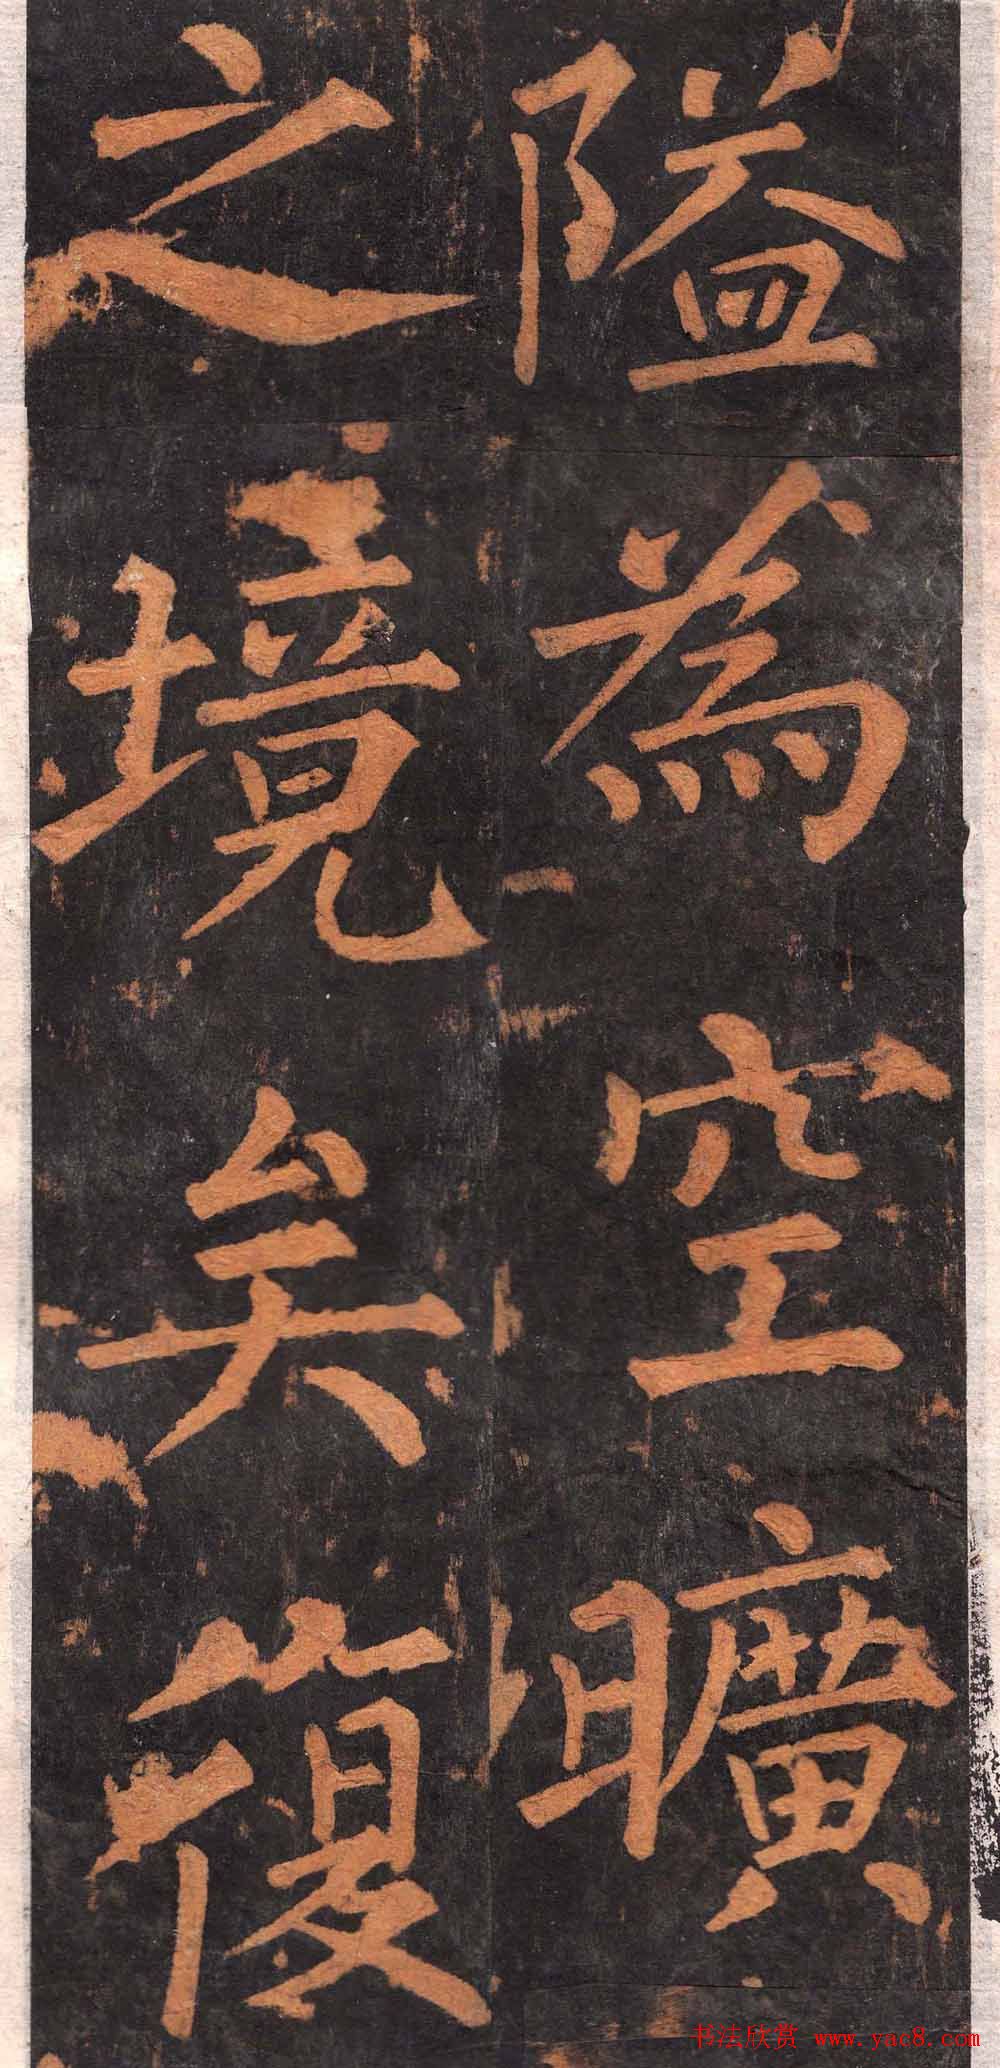 隘為空曠
之境矣復
书法欣赏 www.yac8.com